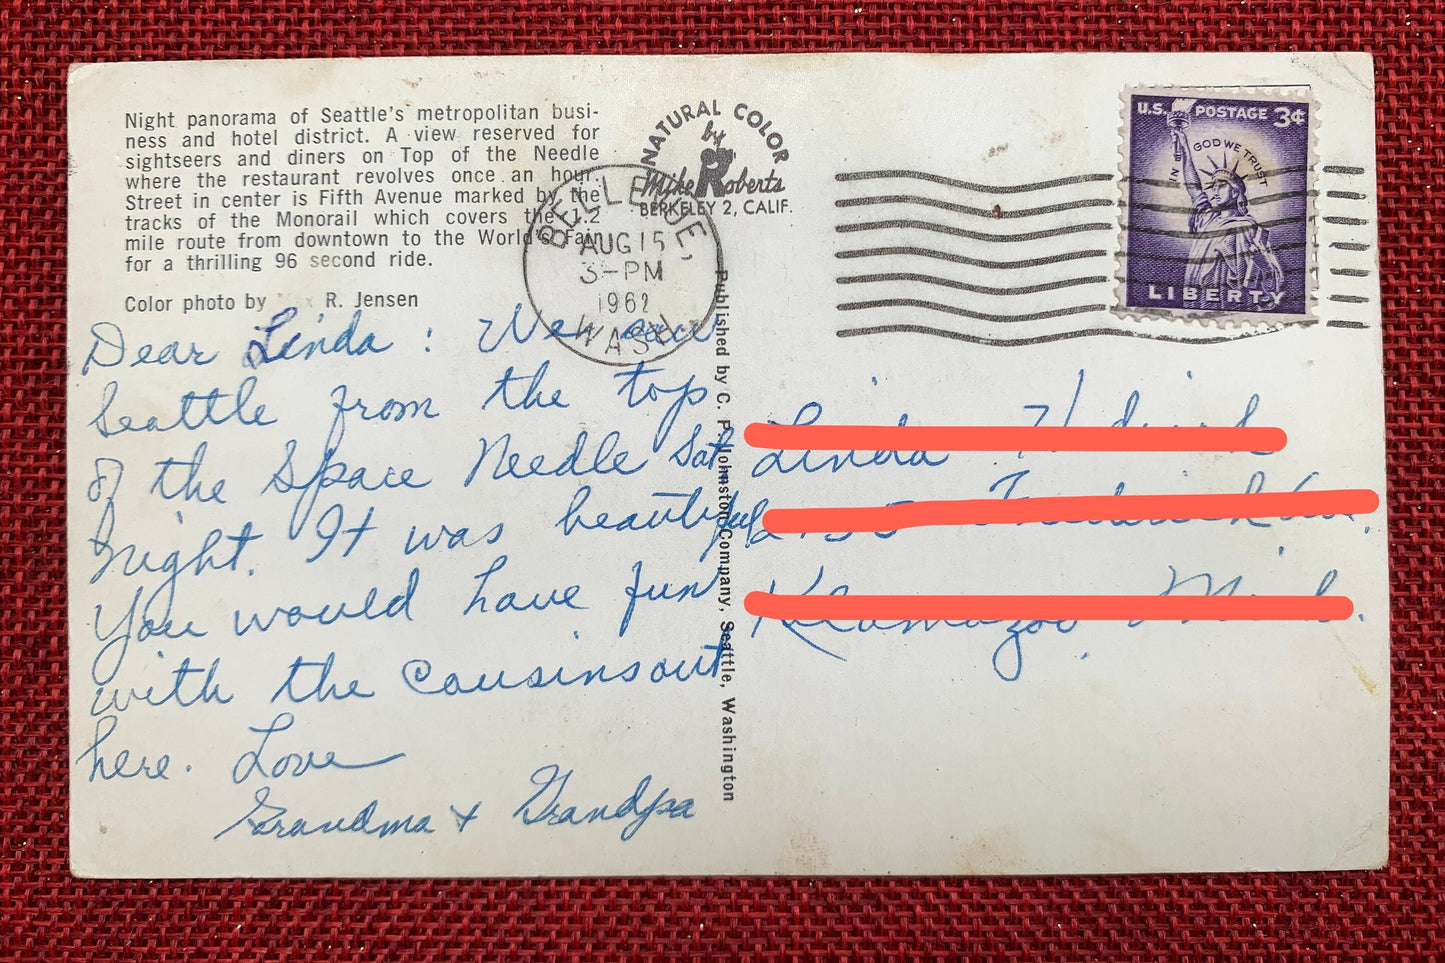 Night panorama of Seattle's metropolitan busi-
ness and hotel district. A view reserved for
sightseers and diners on Top of the Needle
where the restaurant revolves once an hour.
Street in center is Fifth Avenue marked by the
tracks of the Monorail which covers the 1.2
mile route from downtown to the World's Fair
for a thrilling 96 second ride.
Color photo by R. Jensen
NATURAL COLOR
by
Mike Roberts
BERKELEY 2, CALIF.
BELLEVUE,
AUG 15
3-PM
1962
WASH.
U.S. POSTAGE 3¢
IN GOD WE TRUST
LIBERTY
Dear Linda: We saw
Seattle from the top
of the Space Needle Sat.
night. It was beautiful.
You would have fun
with the cousins out
here. Love
Grandma + Grandpa
Published by C. P. Johnston Company, Seattle, Washington